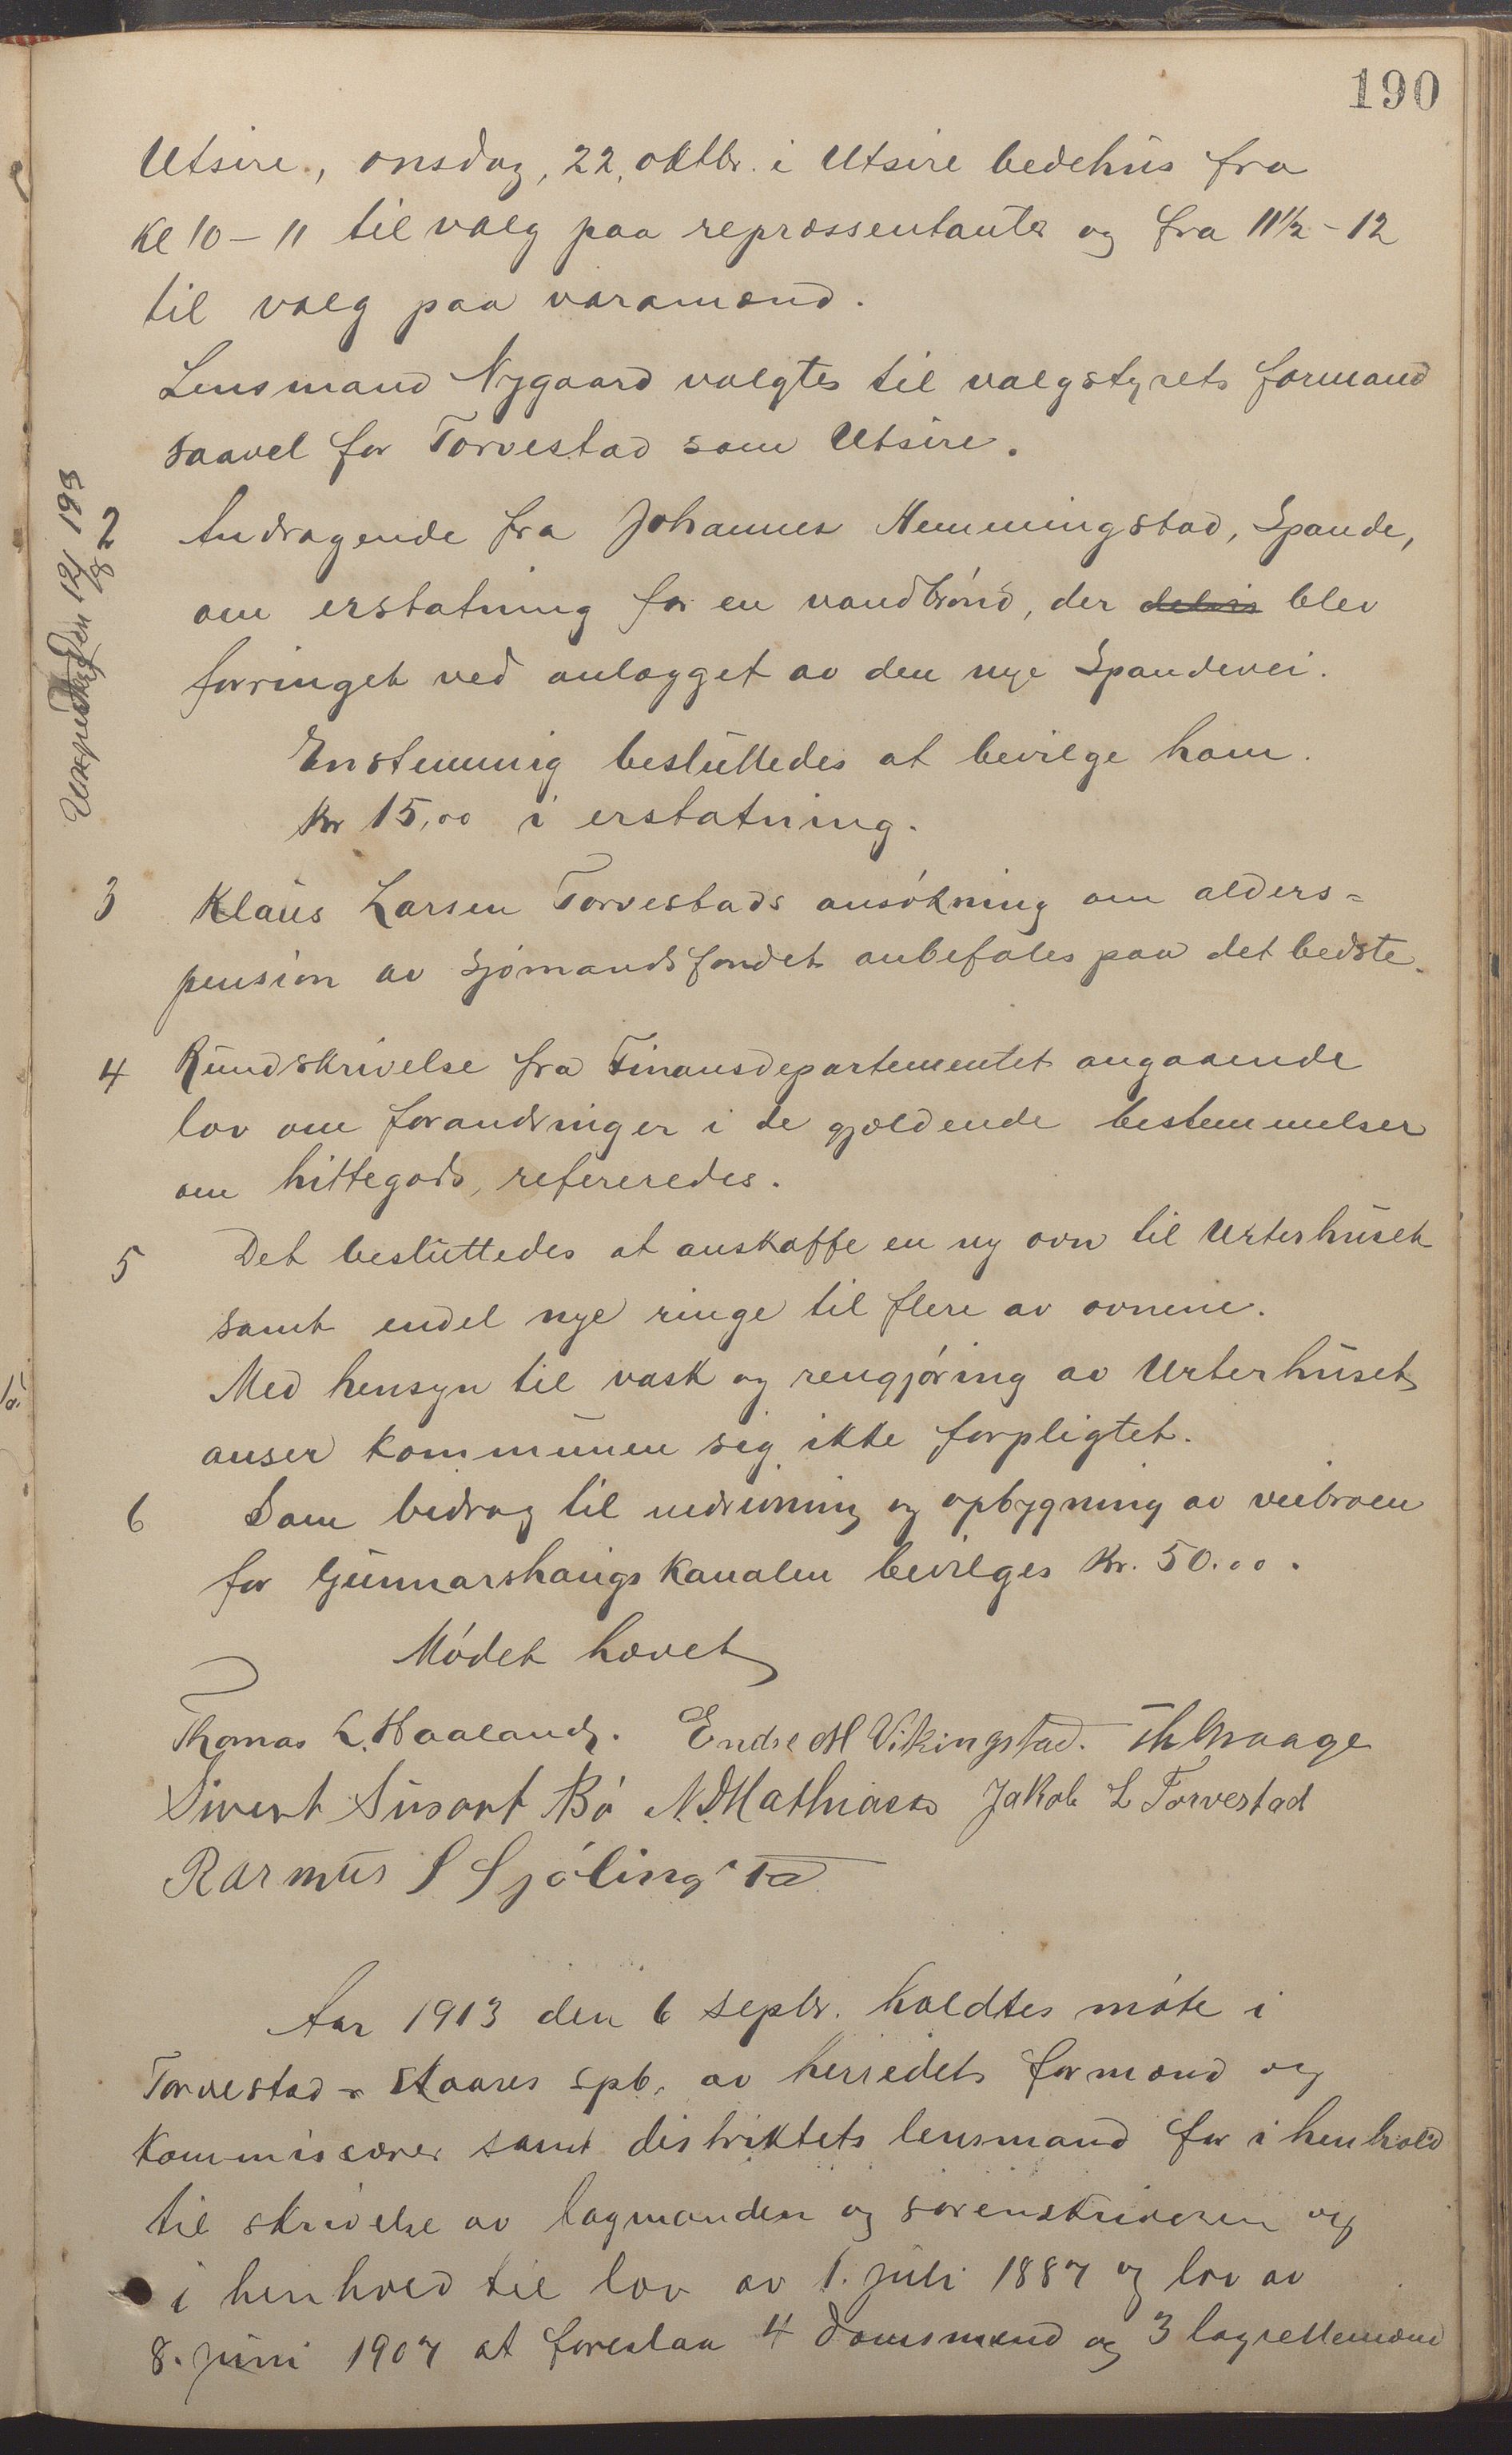 190
Utsire, onsdag, 22, oktbr. i Utsire bedehus fra
Kl 10 - 11 til valg paa repræssentanter og fra 11½ - 12
til valg paa varamænd.
Lensmand Nygaard valgtes til valgstyrets formand
saavel for Torvestad som Utsire.
2 Andragende fra Johannes Hemmingstad, Spande,
om erstatning for en vandbrönd, der delvis blev
forringet ved anlægget av den nye Spandevei.
Enstemmig besluttedes at bevilge ham.
Kr 15,00 i erstatning.
3 Klaus Larsen Torvestads ansökning om alders=
pension av Sjömandsfondet anbefales paa det bedste.
4 Rundskrivelse fra Finansdepartementet angaaende
lov om forandringer i de gjældende bestemmelser
om hittegods, refereredes.
5 Det besluttedes at anskaffe en ny ovn til Urterhuset
samt endel nye ringe til flere av ovnene.
Med hensyn til vask og rengjöring av Urterhuset
anser kommunen sig ikke forpligtet.
6 Som bidrag til nedrivning og opbygning av veibroen
for Gunnarshaugs Kanalen bevilges Kr. 50.00.
Mödet hævet
Thomas L. Haaland. Endre M Vikingstad. Th Waage
Sivert Sivert Bö N. Mathiasen Jakob L Torvestad
Rasmus S Sjölingstad
Aar 1913 den 6 septbr. holdtes möte i
Torvestad - Skaares spb. av herredets formænd og
Kommissærer samt distriktets lensmand for i henhold
til skrivelse av lagmanden og sorenskriveren og
i henhold til lov av 1. juli 1887 og lov av
8. juni 1907 at foreslaa 4 domsmænd og 3 lagrettemænd